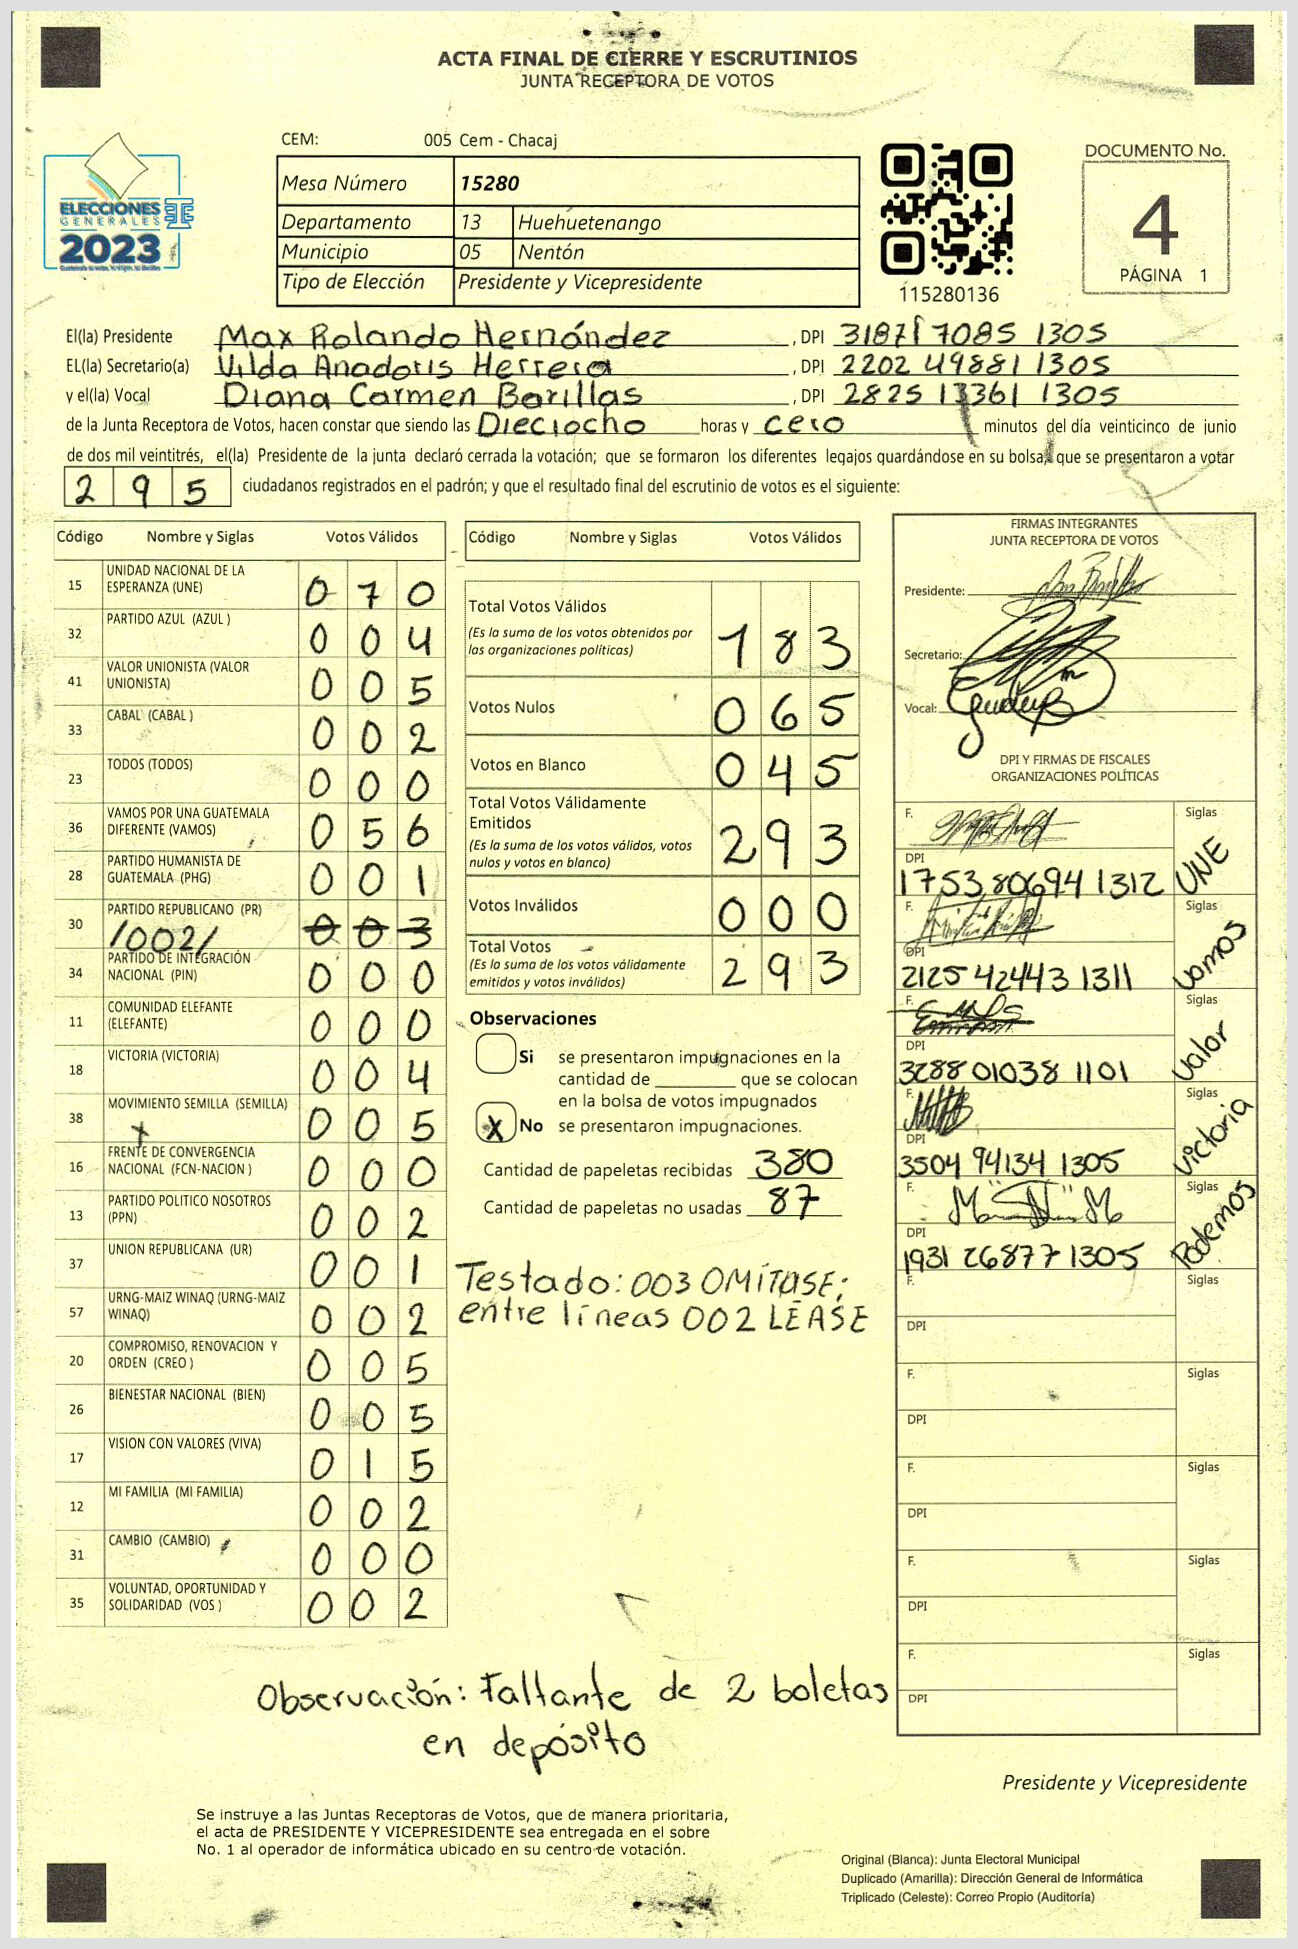 ACTA FINAL DE CIERRE Y ESCRUTINIOS
JUNTA RECEPTORA DE VOTOS
CEM: 005 Cem - Chacaj
Mesa Número 15280
Departamento 13 Huehuetenango
Municipio 05 Nentón
Tipo de Elección Presidente y Vicepresidente
ELECCIONES
GENERALES
2023
115280136
DOCUMENTO No.
4
PÁGINA 1
El(la) Presidente Max Rolando Hernández, DPI 3187 7085 1305
EL(la) Secretario(a) Vilda Anadoris Herrera, DPI 2202 49881 1305
y el(la) Vocal Diana Carmen Barillas, DPI 2825 13361 1305
de la Junta Receptora de Votos, hacen constar que siendo las Dieciocho horas y cero minutos del día veinticinco de junio
de dos mil veintitrés, el(la) Presidente de la junta declaró cerrada la votación; que se formaron los diferentes legajos quardándose en su bolsa, que se presentaron a votar
295 ciudadanos registrados en el padrón; y que el resultado final del escrutinio de votos es el siguiente:
Código Nombre y Siglas Votos Válidos
15 UNIDAD NACIONAL DE LA
ESPERANZA (UNE) 070
32 PARTIDO AZUL (AZUL ) 004
41 VALOR UNIONISTA (VALOR
UNIONISTA) 005
33 CABAL (CABAL ) 002
23 TODOS (TODOS) 000
36 VAMOS POR UNA GUATEMALA
DIFERENTE (VAMOS) 056
28 PARTIDO HUMANISTA DE
GUATEMALA (PHG) 001
30 PARTIDO REPUBLICANO (PR) 003
/002/
34 PARTIDO DE INTEGRACIÓN
NACIONAL (PIN) 000
11 COMUNIDAD ELEFANTE
(ELEFANTE) 000
18 VICTORIA (VICTORIA) 004
38 MOVIMIENTO SEMILLA (SEMILLA) 005
16 FRENTE DE CONVERGENCIA
NACIONAL (FCN-NACION ) 000
13 PARTIDO POLITICO NOSOTROS
(PPN) 002
37 UNION REPUBLICANA (UR) 001
57 URNG-MAIZ WINAQ (URNG-MAIZ
WINAQ) 002
20 COMPROMISO, RENOVACION Y
ORDEN (CREO ) 005
26 BIENESTAR NACIONAL (BIEN) 005
17 VISION CON VALORES (VIVA) 015
12 MI FAMILIA (MI FAMILIA) 002
31 CAMBIO (CAMBIO) 000
35 VOLUNTAD, OPORTUNIDAD Y
SOLIDARIDAD (VOS ) 002
Código Nombre y Siglas Votos Válidos
Total Votos Válidos
(Es la suma de los votos obtenidos por
las organizaciones políticas) 183
Votos Nulos 065
Votos en Blanco 045
Total Votos Válidamente
Emitidos
(Es la suma de los votos válidos, votos
nulos y votos en blanco) 293
Votos Inválidos 000
Total Votos
(Es la suma de los votos válidamente
emitidos y votos inválidos) 293
Observaciones
Si se presentaron impugnaciones en la
cantidad de ________ que se colocan
en la bolsa de votos impugnados
X No se presentaron impugnaciones.
Cantidad de papeletas recibidas 380
Cantidad de papeletas no usadas 87
Testado: 003 OMÍTASE;
entre líneas 002 LÉASE
FIRMAS INTEGRANTES
JUNTA RECEPTORA DE VOTOS
Presidente:
Secretario:
Vocal:
DPI Y FIRMAS DE FISCALES
ORGANIZACIONES POLÍTICAS
F. Siglas
DPI 1753 80694 1312 UNE
F. Siglas
DPI 2125 42443 1311 Vamos
F. Siglas
DPI 3288 01038 1101 Valor
F. Siglas
DPI 3504 94134 1305 Victoria
F. Siglas
DPI 1931 26877 1305 Podemos
F. Siglas
DPI
F. Siglas
DPI
F. Siglas
DPI
F. Siglas
DPI
F. Siglas
DPI
Observación: Faltante de 2 boletas
en depósito
Presidente y Vicepresidente
Se instruye a las Juntas Receptoras de Votos, que de manera prioritaria,
el acta de PRESIDENTE Y VICEPRESIDENTE sea entregada en el sobre
No. 1 al operador de informática ubicado en su centro de votación.
Original (Blanca): Junta Electoral Municipal
Duplicado (Amarilla): Dirección General de Informática
Triplicado (Celeste): Correo Propio (Auditoría)